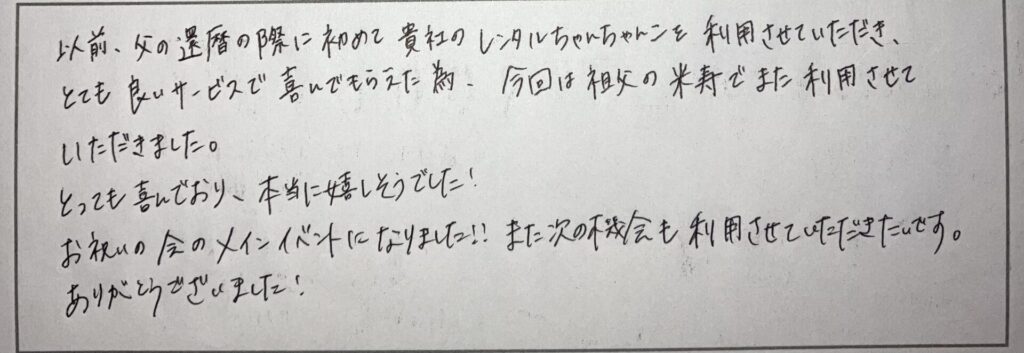 以前、父の還暦の際に初めて貴社のレンタルちゃんちゃんこを利用させていただき、
とても良いサービスで喜んでもらえた為、今回は祖父の米寿でまた利用させて
いただきました。
とっても喜んでおり、本当に嬉しそうでした!
お祝いの会のメインイベントになりました!! また次の機会も利用させていただきたいです。
ありがとうございました!